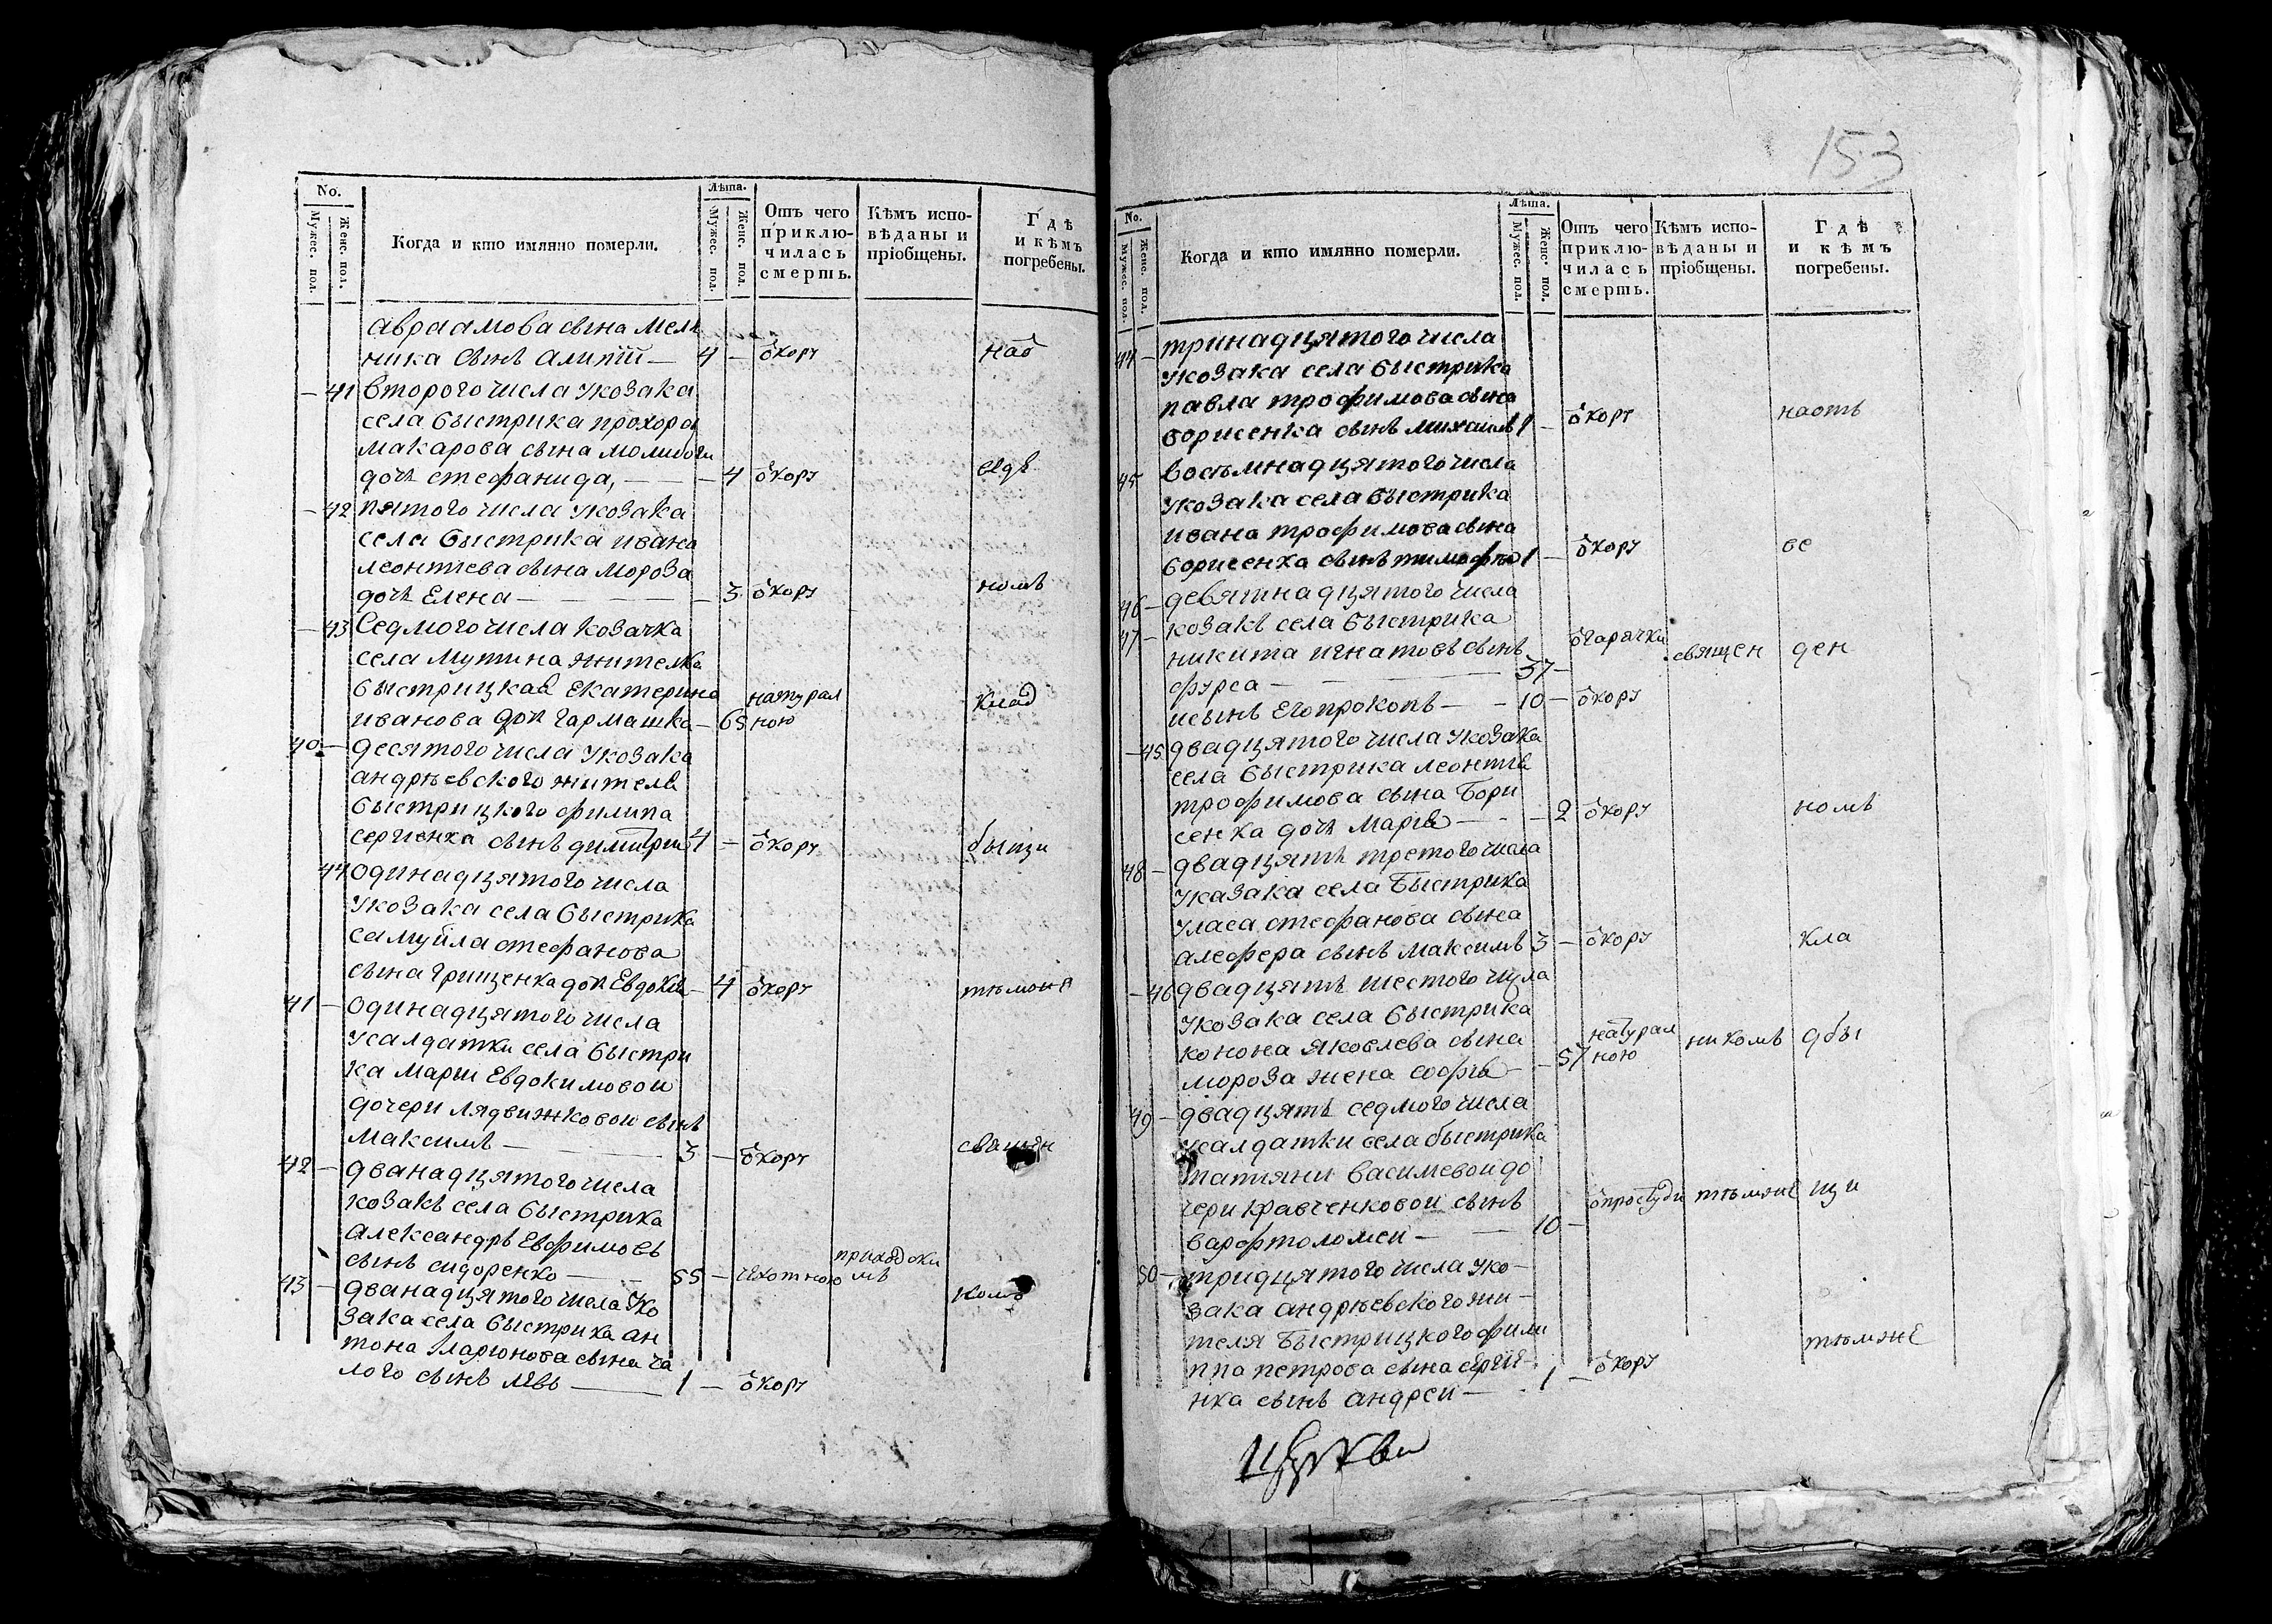 No.
Мужес. пол.
Женс. пол.
Когда и кто имянно померли.
Лѣта.
Мужес. пол.
Женс. пол.
Отъ чего приклю-
чилась смерть.
Кѣмъ испо-
вѣданы и
пріобщены.
Гдѣ
и кѣмъ
погребены.
авраамова сына Мель
ника сынъ Алипій — 4 — ѿ кору наѿ
— 41 второго числа у козака
села быстрика прохора
макарова сына
дочь стефанида, — — 4 ѿ кору
— 42 пятого числа у козака
села быстрика ивана
леонтіева сына мороза
дочь Елена — — 3 ѿ кору номъ
— 43 Седмого числа козачка
села мутина жителка
быстрицкая екатерина натурал
иванова дочь гармашка — 65 ною клад
40 — десятого числа у козака
андрѣевского жителя
быстрицкого филипа
сергіенка сынъ димитрій 4 — ѿ кору бищи
44 одинадцятого числа
у козака села быстрика
самуйла стефанова
сына грищенка дочь Евдокія — 4 ѿ кору тѣмъже
41 — одинадцятого числа
у салдатки села быстри
ка марии Евдокимовои
дочери лядвижковои сынъ
максимъ — 3 — ѿ кору священ
42 — дванадцятого числа
козакъ села быстрика
александръ Евфимовъ
сынъ сидоренко — 55 — чехотною приходски
мъ
43 — дванадцятого числа у ко
зака села быстрика ан
тона Иларіонова сына ча
лого сынъ левъ — 1 — ѿ кору
153
No.
Мужес. пол.
Женс. пол.
Когда и кто имянно померли.
Лѣта.
Мужес. пол.
Женс. пол.
Отъ чего
приклю-
чилась
смерть.
Кѣмъ испо-
вѣданы и
пріобщены.
Гдѣ
и кѣмъ
погребены.
44 — тринадцятого числа
у козака села быстрика
павла трофимова сына
борисенка сынъ михаилъ 1 — ѿ кору
45 восьмнадцятого числа
у козака села быстрика
ивана трофимова сына
борисенка сынъ тимофей 1 — ѿ кору ве
46 — девятнадцятого числа
47 — козакъ села быстрика
никита игнатовъ сынъ ѿ гарячки священ ден
фурса — 37 —
и сынъ его прокопъ — 10 — ѿ кору
— 45 двадцятого числа у козака
села быстрика леонтія
трофимова сына Бори
сенка дочь Марія — — 2 ѿ кору номъ
48 — двадцять третого числа
у казака села Быстрика
уласа стефанова сына
алефера сынъ максимъ 3 — ѿ кору кла
— 46 двадцять шестого числа
у козака села быстрика
конона яковлева сына натурал никомъ дби
мороза жена софія — 57 ною
49 — двадцять седмого числа
у салдатки села быстрика
татияни василевои до
чери кравченковои сынъ ѿ простуди тѣмъже щи
варфтоломеи — 10 —
50 — тридцятого числа у ко-
зака андрѣевского жи-
теля Быстрицкого фили
ппа петрова сына сергіе- тѣмже
нка сынъ андреи — 1 — ѿ кору
церкви